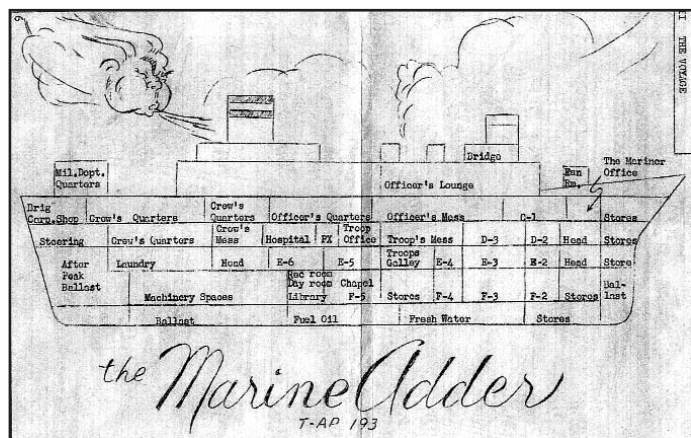 9
II THE VOYAGE
Bridge
The Mariner
Office
Mil.Dept.
Quarters
Officer's Lounge
Rm.
Brig
Carp.Shop
Crew's Quarters
Crew's
Quarters
Officer's Quarters
Officer's Mess
C-1
Stores
Steering
Crew's Quarters
Crew's
Mess
Hospital
PX
Troop
Office
Troop's Mess
D-3
D-2
Head
Stores
After
Peak
Ballast
Laundry
Head
E-6
E-5
Troops
Galley
E-4
E-3
E-2
Head
Store
Machinery Spaces
Rec room
Day room
Library
Chapel
F-5
Stores
F-4
F-3
F-2
Stores
Bal-
last
Ballast
Fuel Oil
Fresh Water
Stores
the Marine Adder
T-AP 193